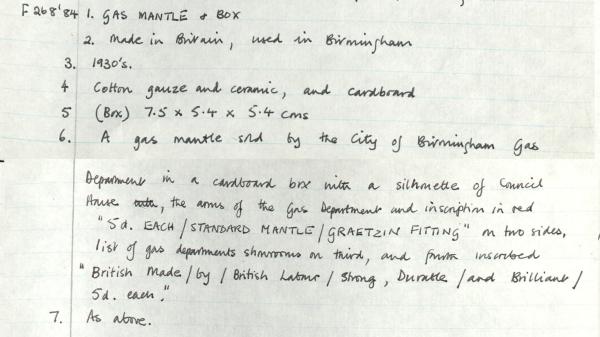 F268'84 1. GAS MANTLE & BOX
2. Made in Britain, used in Birmingham
3. 1930's.
4 Cotton gauze and ceramic, and cardboard
5 (Box) 7.5 x 5.4 x 5.4 cms
6. A gas mantle sold by the City of Birmingham Gas
Department in a cardboard box with a silhouette of Council
House, the arms of the Gas Department and inscription in red
"5d. EACH/STANDARD MANTLE/GRAETZIN FITTING" on two sides,
list of gas departments showrooms on third, and fourth inscribed
"British Made/by/British Labour/Strong, Durable/and Brilliant/
5d. each."
7. As above.